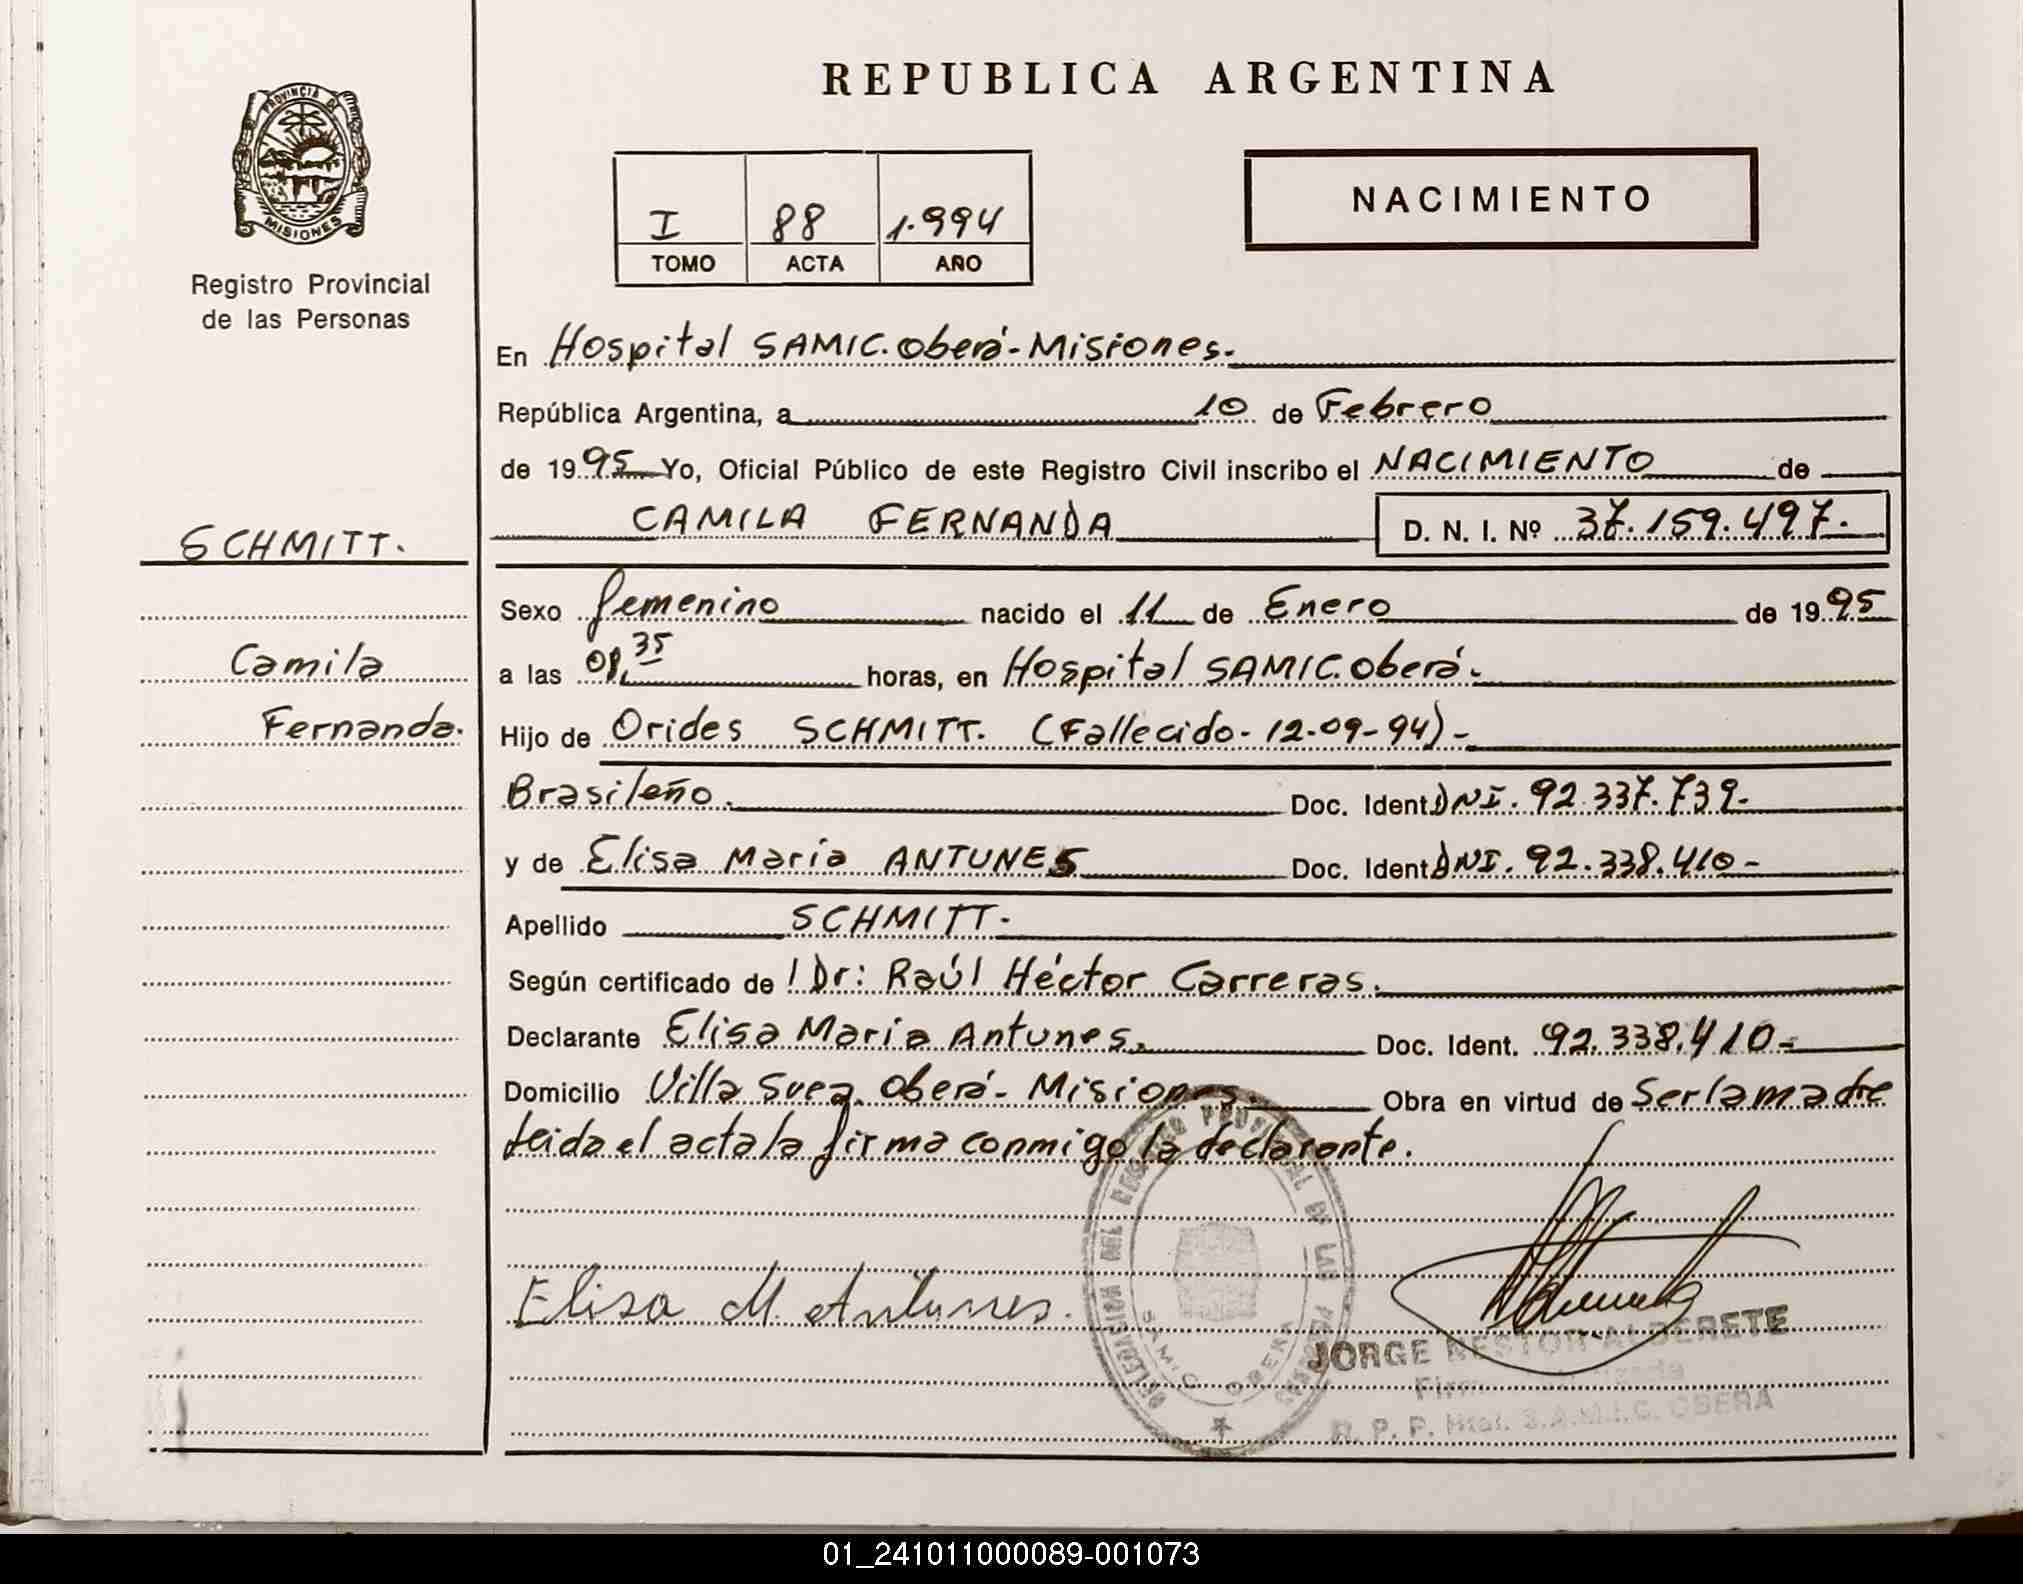 REPUBLICA ARGENTINA
PROVINCIA DE
MISIONES
Registro Provincial
de las Personas
I 88 1.994
TOMO ACTA AÑO
NACIMIENTO
En Hospital SAMIC. Oberá-Misiones.
República Argentina, a 10 de Febrero
de 1995 Yo, Oficial Público de este Registro Civil inscribo el NACIMIENTO de
CAMILA FERNANDA D. N. I. Nº 37.159.497.
SCHMITT.
Sexo femenino nacido el 11 de Enero de 1995
Camila
a las 08,35 horas, en Hospital SAMIC. Oberá.
Fernanda.
Hijo de Orides SCHMITT. (Fallecido-12-09-94)-
Brasileño. Doc. Ident. DNI. 92.337.739-
y de Elisa Maria ANTUNES Doc. Ident. DNI. 92.338.410-
Apellido SCHMITT.
Según certificado de l Dr: Raúl Héctor Carreras.
Declarante Elisa Maria Antunes. Doc. Ident. 92.338.410-
Domicilio Villa Svea. Oberá- Misiones. Obra en virtud de Ser la madre
leida el acta la firma conmigo la declarante.
Elisa M. Antunes.
DELEGACION DEL REGISTRO PROVINCIAL DE LAS PERSONAS
SAMIC OBERA
JORGE NESTOR ALBERETE
R. P. P. Htal. S.A.M.I.C. OBERA
01_241011000089-001073